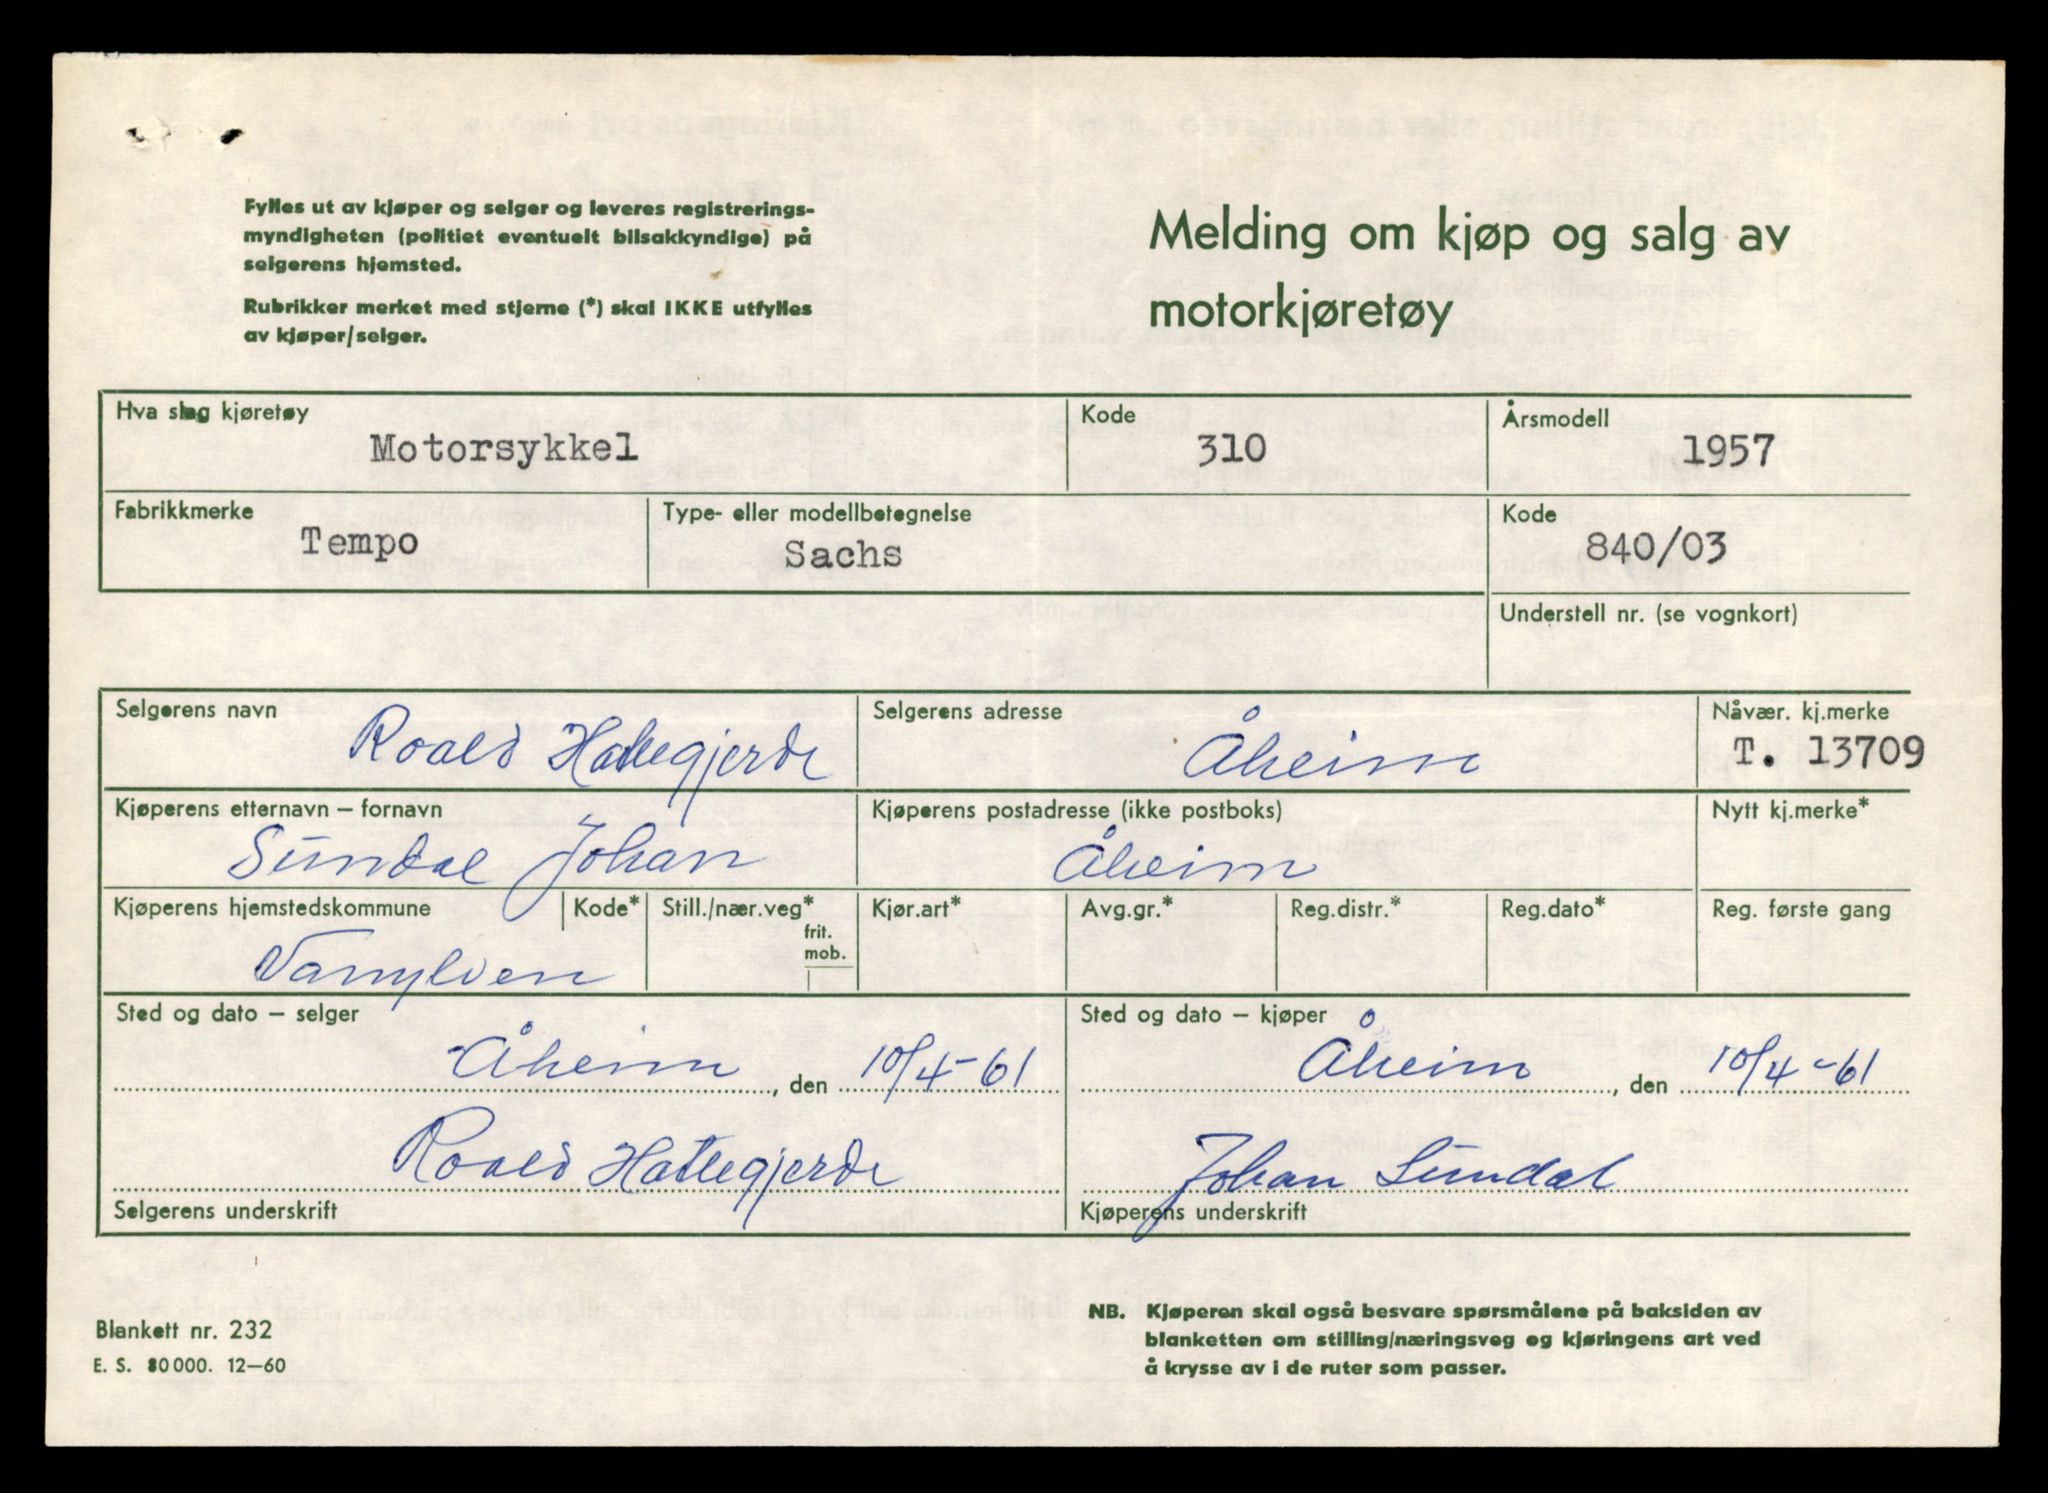 Fylles ut av kjøper og selger og leveres registrerings-
myndigheten (politiet eventuelt bilsakkyndige) på
selgerens hjemsted.
Rubrikker merket med stjerne (*) skal IKKE utfylles
av kjøper/selger.
Melding om kjøp og salg av
motorkjøretøy
Hva slag kjøretøy
Motorsykkel
Kode
310
Årsmodell
1957
Fabrikkmerke
Tempo
Type- eller modellbetegnelse
Sachs
Kode
840/03
Understell nr. (se vognkort)
Selgerens navn
Roald Hattegjerde
Selgerens adresse
Åheim
Nåvær. kj.merke
T. 13709
Kjøperens etternavn – fornavn
Sundal Johan
Kjøperens postadresse (ikke postboks)
Åheim
Nytt kj.merke*
Kjøperens hjemstedskommune
Vanylven
Kode*
Still./nær.veg*
frit.
mob.
Kjør.art*
Avg.gr.*
Reg.distr.*
Reg.dato*
Reg. første gang
Sted og dato – selger
Åheim, den 10/4-61
Roald Hattegjerde
Selgerens underskrift
Sted og dato – kjøper
Åheim, den 10/4-61
Johan Sundal
Kjøperens underskrift
Blankett nr. 232
E. S. 80 000. 12—60
NB. Kjøperen skal også besvare spørsmålene på baksiden av
blanketten om stilling/næringsveg og kjøringens art ved
å krysse av i de ruter som passer.